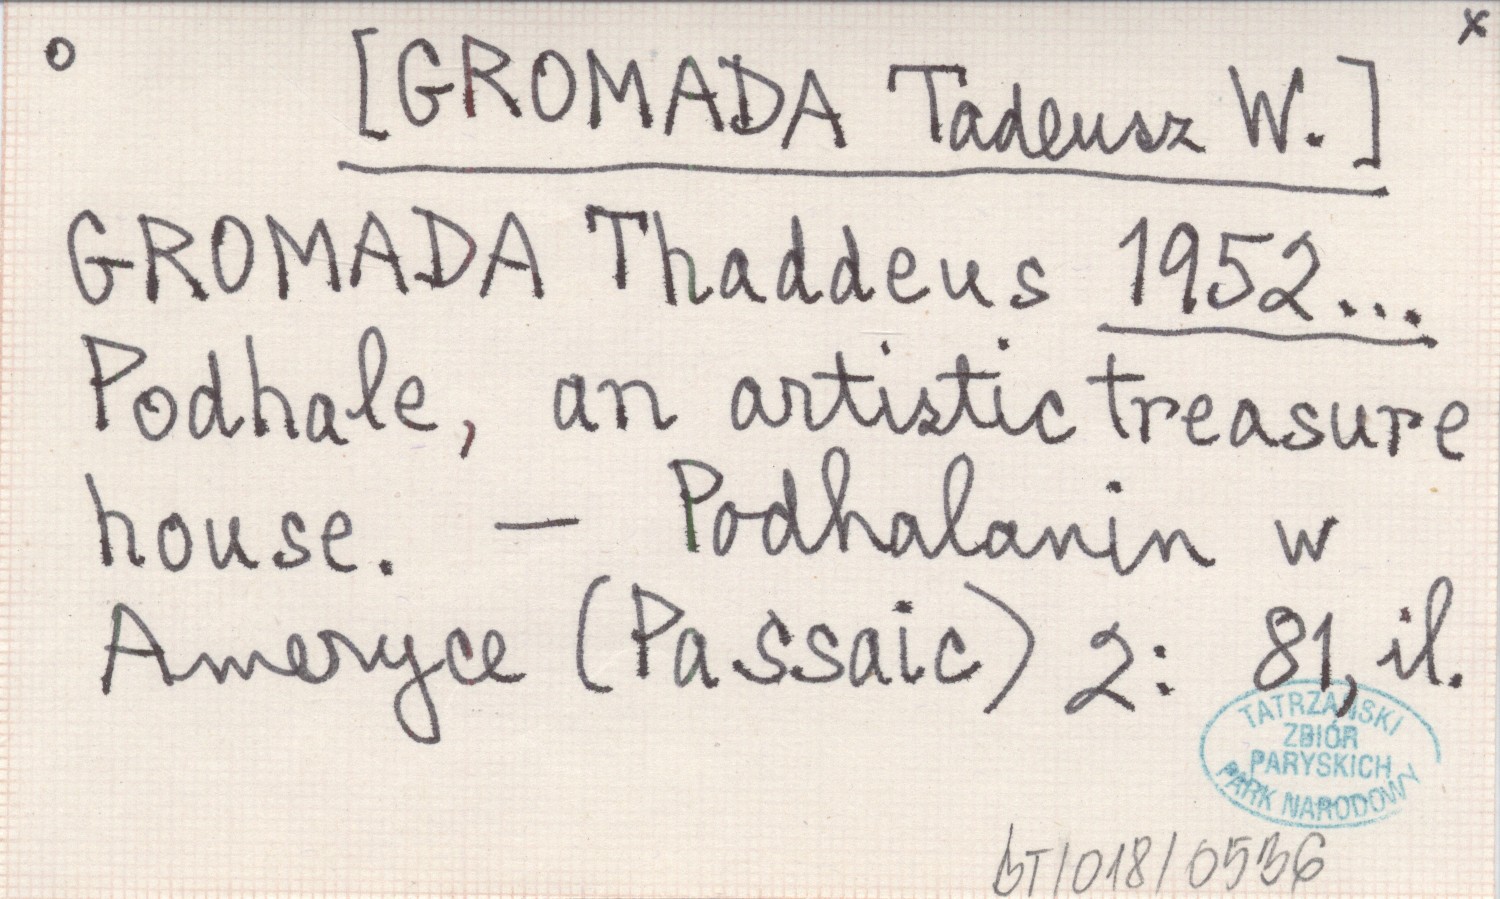 o [GROMADA Tadeusz W.] x
GROMADA Thaddeus 1952...
Podhale, an artistic treasure
house. – Podhalanin w
Ameryce (Passaic) 2: 81, il.
TATRZAŃSKI
ZBIÓR
PARYSKICH
PARK NARODOWY
BT/018/0536